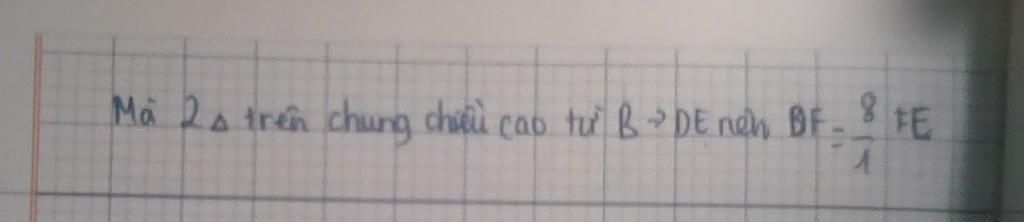 Mà 2 △ trên chung chiều cao từ B → DE nên BF = 8/1 FE